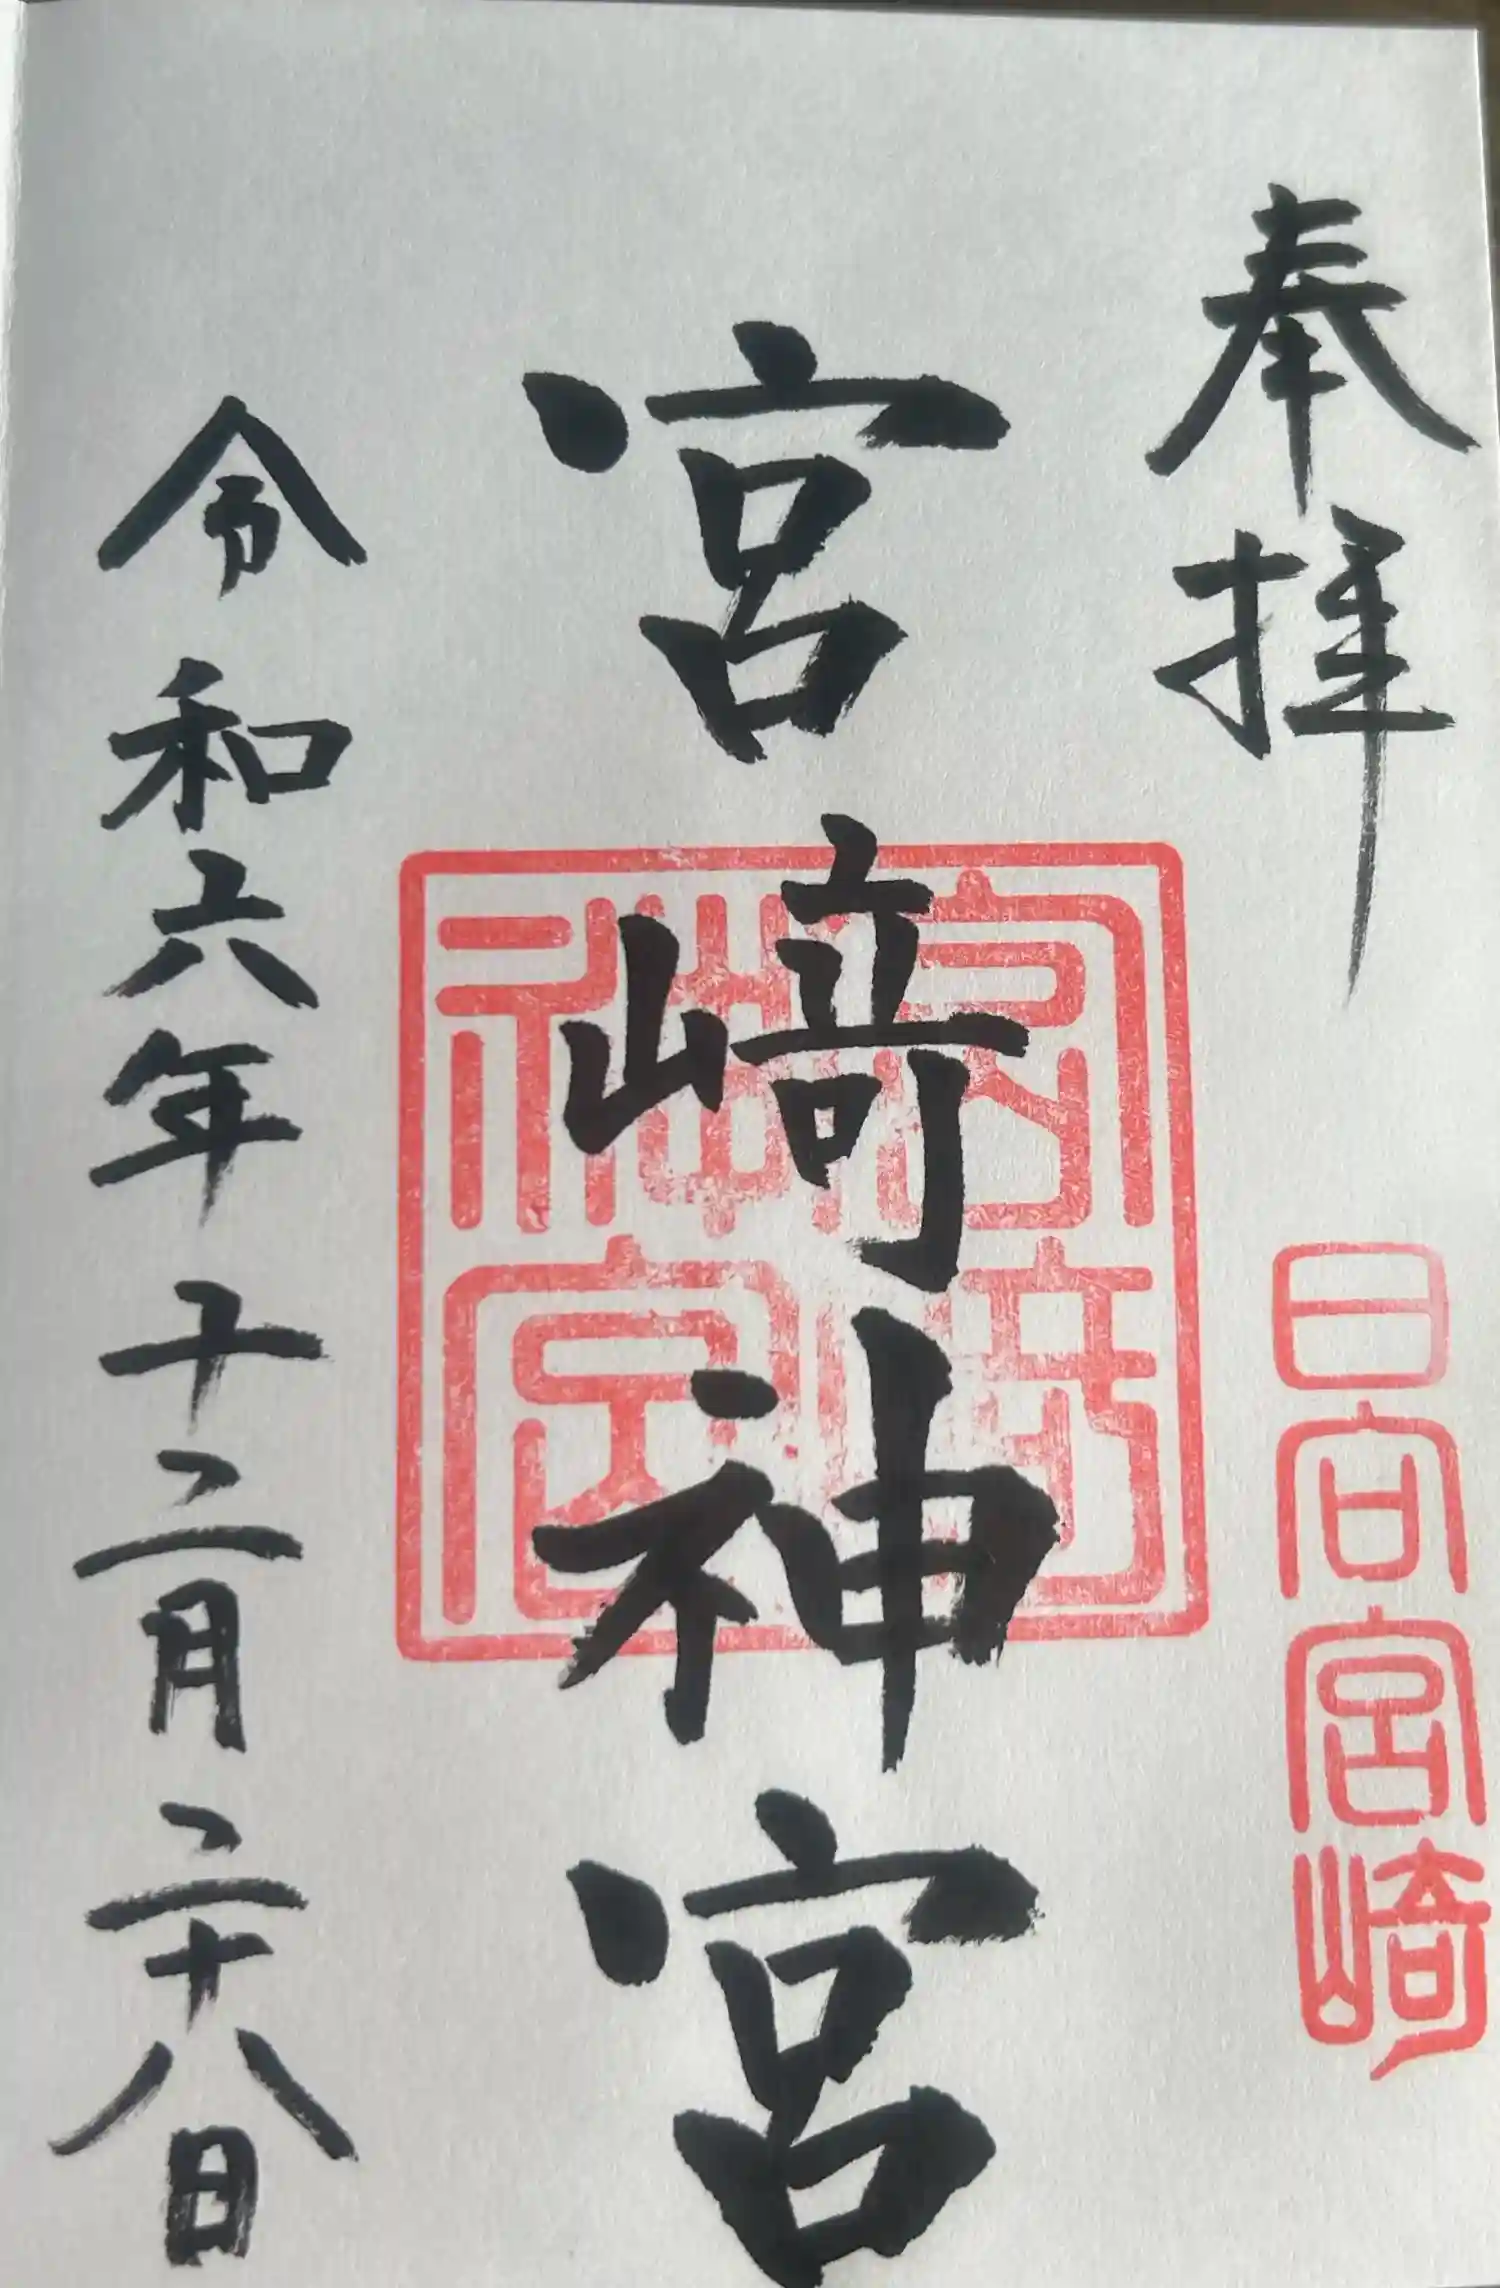 奉拝
日向宮﨑
宮﨑神宮
宮﨑神宮
令和六年十二月二十八日